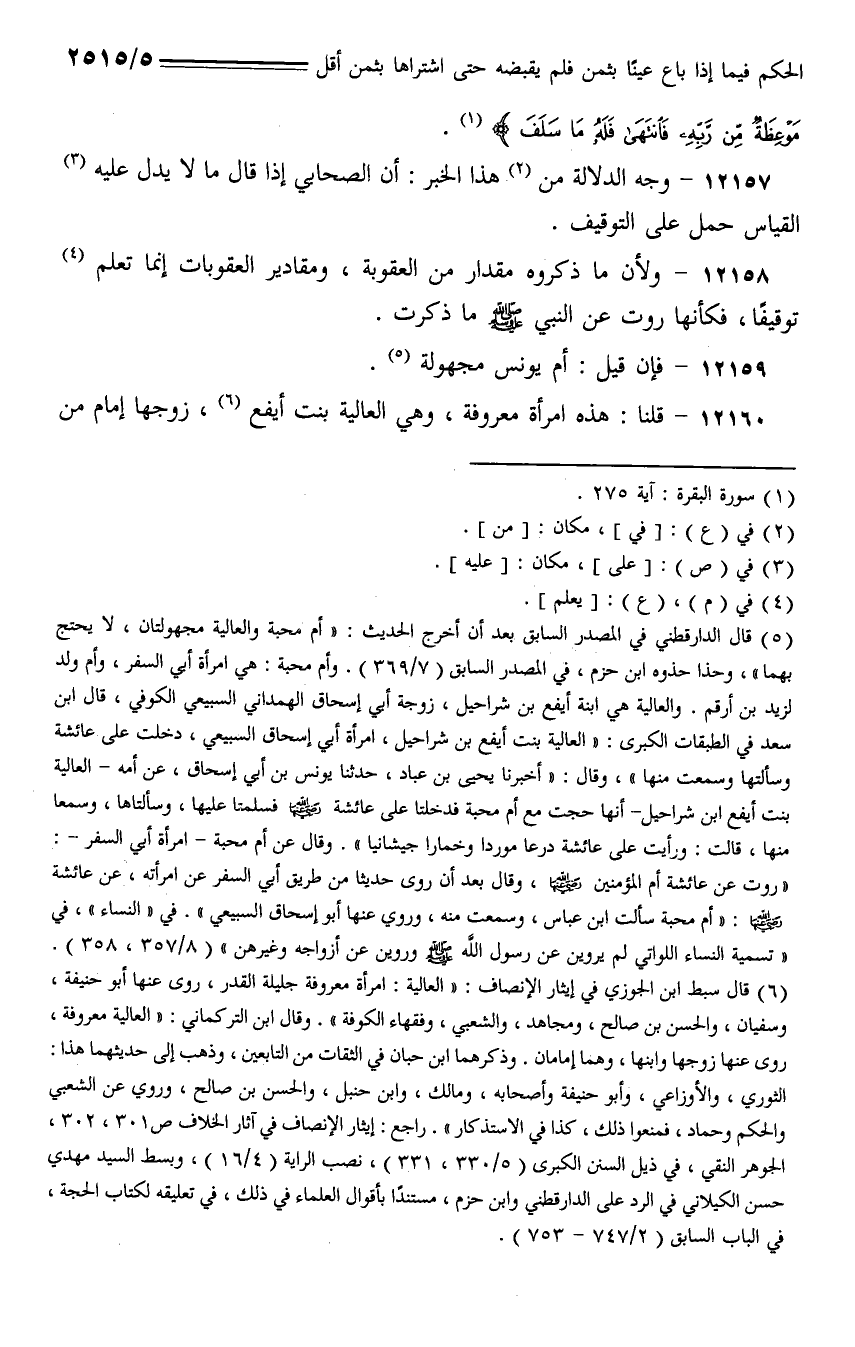 الحكم فيما إذا باع عينًا بثمن فلم يقبضه حتى اشتراها بثمن أقل ٢٥١٥/٥
مَوْعِظَةٌ مِّن رَّبِّهِۦ فَٱنتَهَىٰ فَلَهُۥ مَا سَلَفَ ﴾ (١) .
١٢١٥٧ - وجه الدلالة من (٢) هذا الخبر : أن الصحابي إذا قال ما لا يدل عليه (٣)
القياس حمل على التوقيف .
١٢١٥٨ - ولأن ما ذكروه مقدار من العقوبة ، ومقادير العقوبات إنما تعلم (٤)
توقيفًا ، فكأنها روت عن النبي ﷺ ما ذكرت .
١٢١٥٩ - فإن قيل : أم يونس مجهولة (٥) .
١٢١٦٠ - قلنا : هذه امرأة معروفة ، وهي العالية بنت أيفع (٦) ، زوجها إمام من
(١) سورة البقرة : آية ٢٧٥ .
(٢) في ( ع ) : [ في ] ، مكان : [ من ] .
(٣) في ( ص ) : [ على ] ، مكان : [ عليه ] .
(٤) في ( م ) ، ( ع ) : [ يعلم ] .
(٥) قال الدارقطني في المصدر السابق بعد أن أخرج الحديث : « أم محبة والعالية مجهولتان ، لا يحتج
بهما » ، وحذا حذوه ابن حزم ، في المصدر السابق ( ٣٦٩/٧ ) . وأم محبة : هي امرأة أبي السفر ، وأم ولد
لزيد بن أرقم . والعالية هي ابنة أيفع بن شراحيل ، زوجة أبي إسحاق الهمداني السبيعي الكوفي ، قال ابن
سعد في الطبقات الكبرى : « العالية بنت أيفع بن شراحيل ، امرأة أبي إسحاق السبيعي ، دخلت على عائشة
وسألتها وسمعت منها » ، وقال : « أخبرنا يحيى بن عباد ، حدثنا يونس بن أبي إسحاق ، عن أمه - العالية
بنت أيفع ابن شراحيل- أنها حجت مع أم محبة فدخلتا على عائشة رضي الله عنها فسلمتا عليها ، وسألتاها ، وسمعا
منها ، قالت : ورأيت على عائشة درعا موردا وخمارا جيشانيا » . وقال عن أم محبة - امرأة أبي السفر - :
« روت عن عائشة أم المؤمنين رضي الله عنها ، وقال بعد أن روى حديثا من طريق أبي السفر عن امرأته ، عن عائشة
رضي الله عنها : « أم محبة سألت ابن عباس ، وسمعت منه ، وروي عنها أبو إسحاق السبيعي » . في « النساء » ، في
« تسمية النساء اللواتي لم يروين عن رسول اللَّه ﷺ وروين عن أزواجه وغيرهن » ( ٣٥٧/٨ ، ٣٥٨ ) .
(٦) قال سبط ابن الجوزي في إيثار الإنصاف : « العالية : امرأة معروفة جليلة القدر ، روى عنها أبو حنيفة ،
وسفيان ، والحسن بن صالح ، ومجاهد ، والشعبي ، وفقهاء الكوفة » . وقال ابن التركماني : « العالية معروفة ،
روى عنها زوجها وابنها ، وهما إمامان . وذكرهما ابن حبان في الثقات من التابعين ، وذهب إلى حديثهما هذا :
الثوري ، والأوزاعي ، وأبو حنيفة وأصحابه ، ومالك ، وابن حنبل ، والحسن بن صالح ، وروي عن الشعبي
والحكم وحماد ، فمنعوا ذلك ، كذا في الاستذكار » . راجع : إيثار الإنصاف في آثار الخلاف ص٣٠١ ، ٣٠٢ ،
الجوهر النقي ، في ذيل السنن الكبرى ( ٣٣٠/٥ ، ٣٣١ ) ، نصب الراية ( ١٦/٤ ) ، وبسط السيد مهدي
حسن الكيلاني في الرد على الدارقطني وابن حزم ، مستندًا بأقوال العلماء في ذلك ، في تعليقه لكتاب الحجة ،
في الباب السابق ( ٧٤٧/٢ - ٧٥٣ ) .